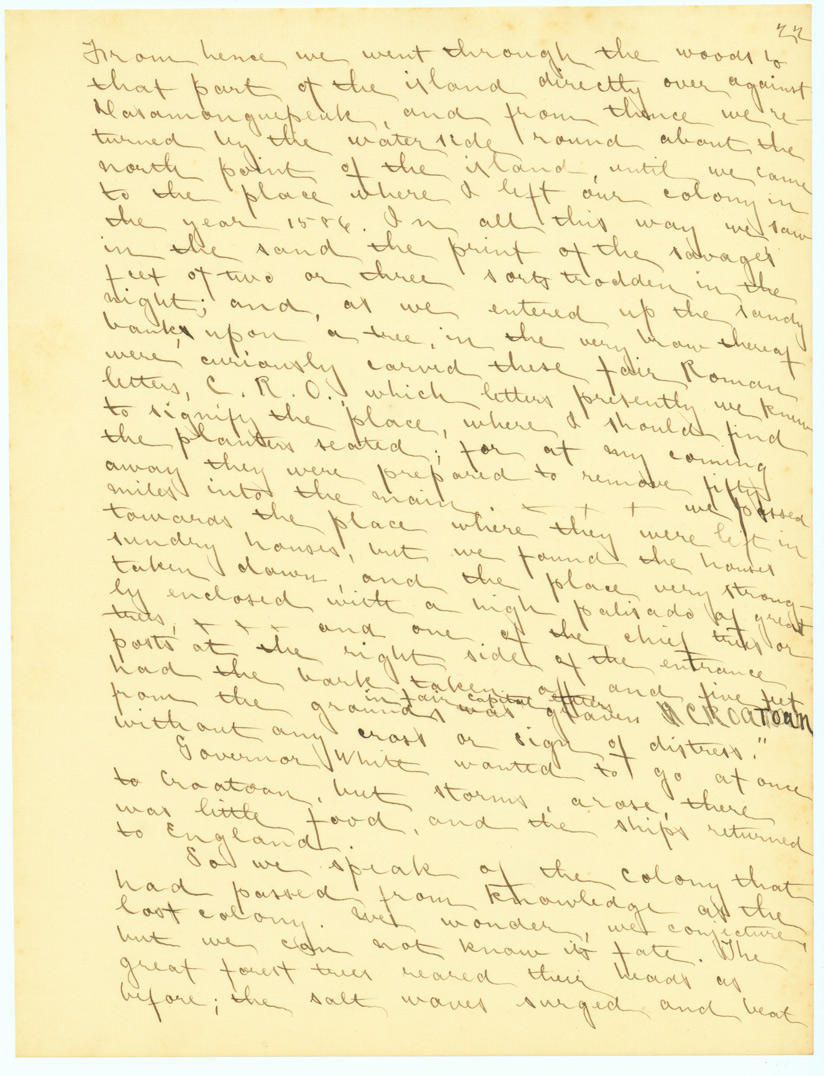 22
From hence we went through the woods to
that part of the island directly over against
Dasamonguepeuk, and from thence we re-
turned by the water side round about the
north point of the island, until we came
to the place where I left our colony in
the year 1586. In all this way we saw
in the sand the print of the savages'
feet of two or three sorts trodden in the
night; and, as we entered up the sandy
bank, upon a tree, in the very brow thereof
were curiously carved these fair Roman
letters, C. R. O." which letters presently we knew
to signify the place, where I should find
the planters seated; for at my coming
away they were prepared to remove fifty
miles into the main. x + + we passed
towards the place where they were left in
sundry houses, but we found the houses
taken down, and the place very strong-
ly enclosed with a high palisado of great
trees, x x x and one of the chief trees or
posts at the right side of the entrance
had the bark taken off and five feet
in fair capital letters
from the ground was graven CROATOAN
without any cross or sign of distress."
Governor White wanted to go at once
to Croatoan, but storms, arose, there
was little food, and the ships returned
to England.
So we speak of the colony that
had passed from knowledge as the
lost colony. We wonder, we conjecture,
but we can not know its fate. The
great forest trees reared their heads as
before; the salt waves surged and beat